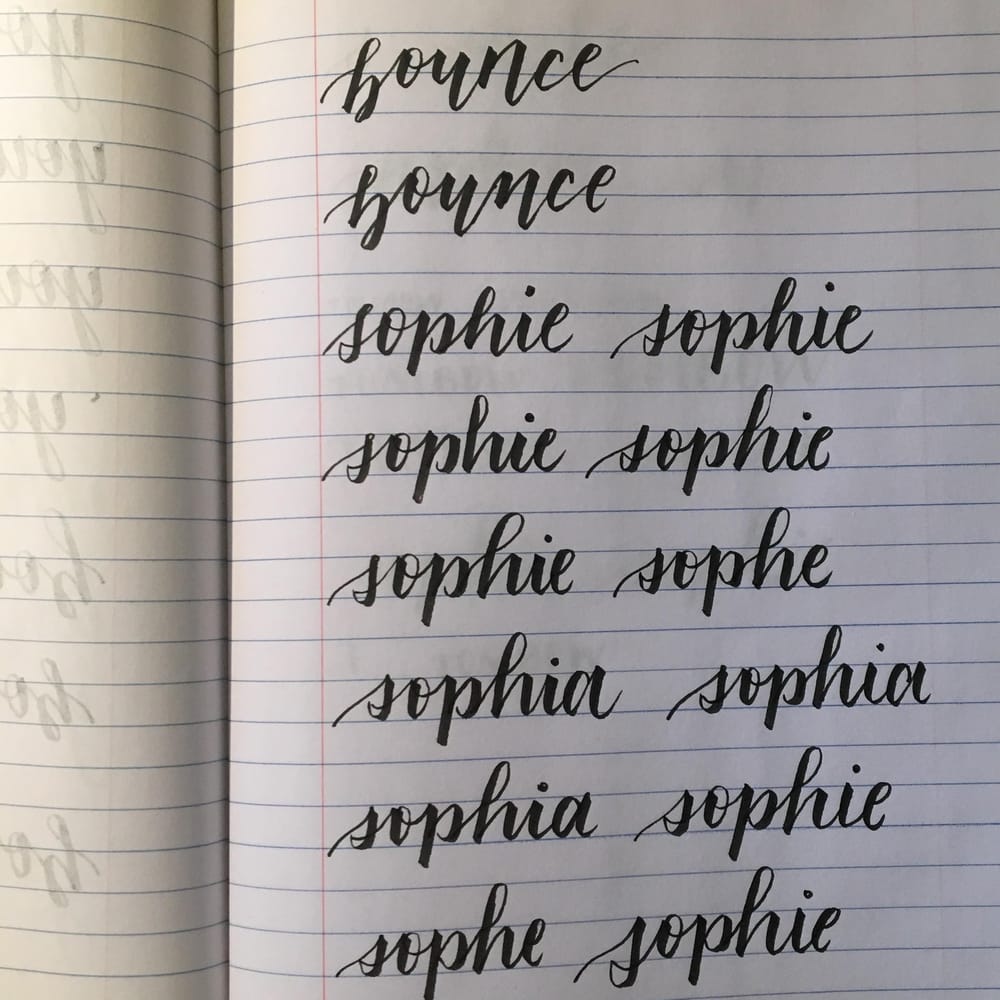 bounce
bounce
sophie sophie
sophie sophie
sophie sophe
sophia sophia
sophia sophie
sophe sophie